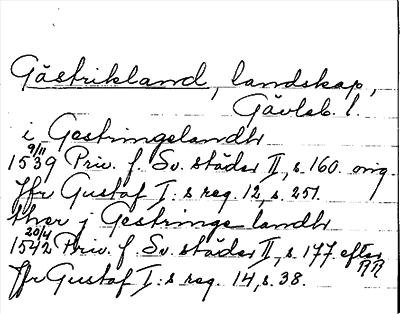 Gästrikland, landskap,
Gävleb. l.
i Gestringelandh
9/11
1539 Priv. f. Sv. städer II, s. 160. orig.
Jfr Gustaf I:s reg. 12, s. 251.
ther j Gestringe landh
20/4
1542 Priv. f. Sv. städer II, s. 177. efter RR
Jfr Gustaf I:s reg. 14, s. 38.